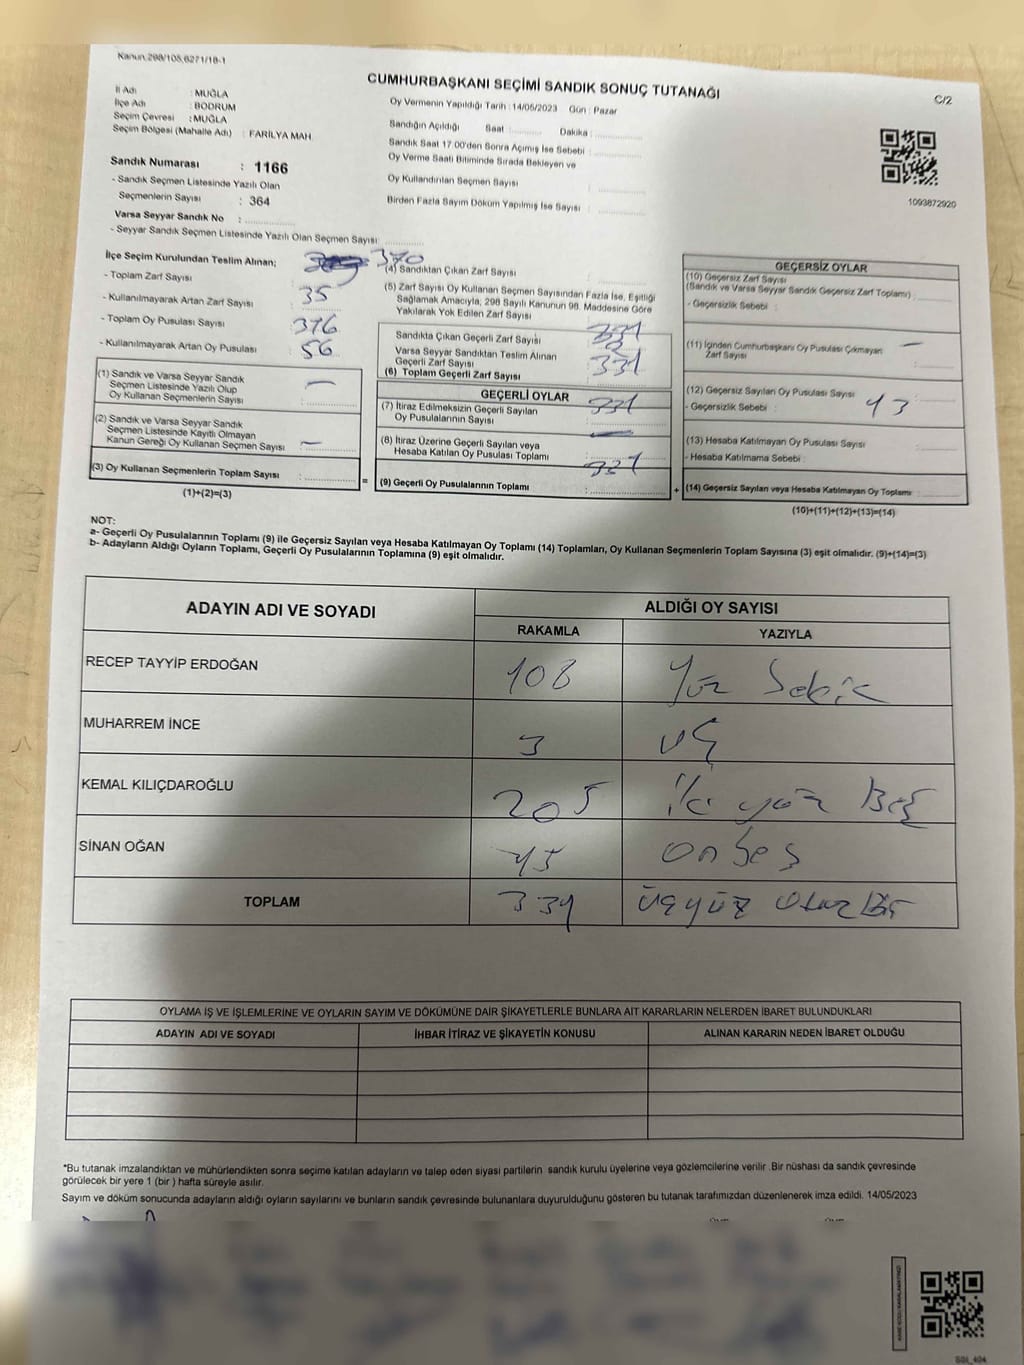 Kanun,298/105,6271/18-1
CUMHURBAŞKANI SEÇİMİ SANDIK SONUÇ TUTANAĞI
C/2
İl Adı : MUĞLA
İlçe Adı : BODRUM
Seçim Çevresi : MUĞLA
Seçim Bölgesi (Mahalle Adı) : FARİLYA MAH
Sandık Numarası : 1166
- Sandık Seçmen Listesinde Yazılı Olan
Seçmenlerin Sayısı : 364
Varsa Seyyar Sandık No :
- Seyyar Sandık Seçmen Listesinde Yazılı Olan Seçmen Sayısı:
Oy Vermenin Yapıldığı Tarih : 14/05/2023 Gün : Pazar
Sandığın Açıldığı Saat : Dakika :
Sandık Saat 17.00'den Sonra Açılmış İse Sebebi :
Oy Verme Saati Bitiminde Sırada Bekleyen ve
Oy Kullandırılan Seçmen Sayısı :
Birden Fazla Sayım Döküm Yapılmış İse Sayısı :
1093872920
İlçe Seçim Kurulundan Teslim Alınan;
370
- Toplam Zarf Sayısı
- Kullanılmayarak Artan Zarf Sayısı : 35
- Toplam Oy Pusulası Sayısı : 376
- Kullanılmayarak Artan Oy Pusulası : 56
(1) Sandık ve Varsa Seyyar Sandık
Seçmen Listesinde Yazılı Olup
Oy Kullanan Seçmenlerin Sayısı : —
(2) Sandık ve Varsa Seyyar Sandık
Seçmen Listesinde Kayıtlı Olmayan
Kanun Gereği Oy Kullanan Seçmen Sayısı : —
(3) Oy Kullanan Seçmenlerin Toplam Sayısı :
(1)+(2)=(3)
=
(4) Sandıktan Çıkan Zarf Sayısı :
(5) Zarf Sayısı Oy Kullanan Seçmen Sayısından Fazla İse, Eşitliği
Sağlamak Amacıyla, 298 Sayılı Kanunun 98. Maddesine Göre
Yakılarak Yok Edilen Zarf Sayısı :
Sandıkta Çıkan Geçerli Zarf Sayısı : 331
Varsa Seyyar Sandıktan Teslim Alınan
Geçerli Zarf Sayısı
(6) Toplam Geçerli Zarf Sayısı : 331
GEÇERLİ OYLAR
(7) İtiraz Edilmeksizin Geçerli Sayılan
Oy Pusulalarının Sayısı : 331
(8) İtiraz Üzerine Geçerli Sayılan veya
Hesaba Katılan Oy Pusulası Toplamı : —
(9) Geçerli Oy Pusulalarının Toplamı : 331
+
GEÇERSİZ OYLAR
(10) Geçersiz Zarf Sayısı
(Sandık ve Varsa Seyyar Sandık Geçersiz Zarf Toplamı) :
- Geçersizlik Sebebi :
(11) İçinden Cumhurbaşkanı Oy Pusulası Çıkmayan
Zarf Sayısı : —
(12) Geçersiz Sayılan Oy Pusulası Sayısı : 13
- Geçersizlik Sebebi :
(13) Hesaba Katılmayan Oy Pusulası Sayısı :
- Hesaba Katılmama Sebebi :
(14) Geçersiz Sayılan veya Hesaba Katılmayan Oy Toplamı :
(10)+(11)+(12)+(13)=(14)
NOT:
a- Geçerli Oy Pusulalarının Toplamı (9) ile Geçersiz Sayılan veya Hesaba Katılmayan Oy Toplamı (14) Toplamları, Oy Kullanan Seçmenlerin Toplam Sayısına (3) eşit olmalıdır. (9)+(14)=(3)
b- Adayların Aldığı Oyların Toplamı, Geçerli Oy Pusulalarının Toplamına (9) eşit olmalıdır.
ADAYIN ADI VE SOYADI ALDIĞI OY SAYISI
RAKAMLA YAZIYLA
RECEP TAYYİP ERDOĞAN 108 Yüz Sekiz
MUHARREM İNCE 3 üç
KEMAL KILIÇDAROĞLU 205 iki yüz Beş
SİNAN OĞAN 15 onbeş
TOPLAM 331 üçyüz otuz Bir
OYLAMA İŞ VE İŞLEMLERİNE VE OYLARIN SAYIM VE DÖKÜMÜNE DAİR ŞİKAYETLERLE BUNLARA AİT KARARLARIN NELERDEN İBARET BULUNDUKLARI
ADAYIN ADI VE SOYADI İHBAR İTİRAZ VE ŞİKAYETİN KONUSU ALINAN KARARIN NEDEN İBARET OLDUĞU
*Bu tutanak imzalandıktan ve mühürlendikten sonra seçime katılan adayların ve talep eden siyasi partilerin sandık kurulu üyelerine veya gözlemcilerine verilir .Bir nüshası da sandık çevresinde
görülecek bir yere 1 (bir ) hafta süreyle asılır.
Sayım ve döküm sonucunda adayların aldığı oyların sayılarını ve bunların sandık çevresinde bulunanlara duyurulduğunu gösteren bu tutanak tarafımızdan düzenlenerek imza edildi. 14/05/2023